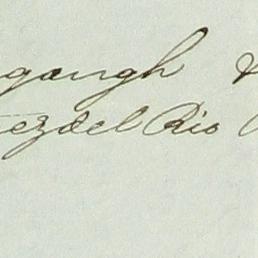 gaugh &
ez del Rio